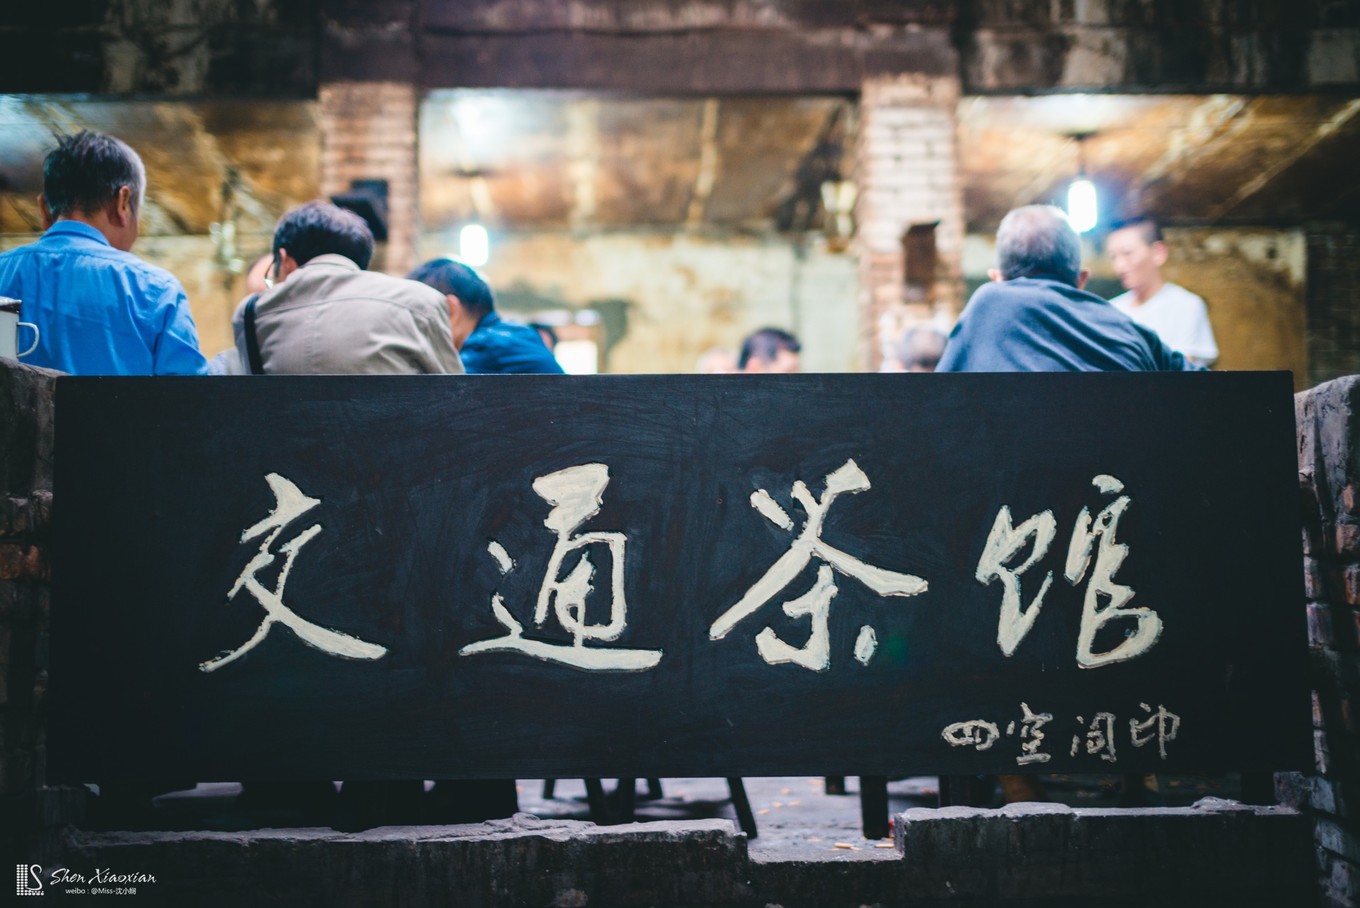 交通茶馆
四空间印
Shen Xiaoxian
weibo : @Miss-沈小娴